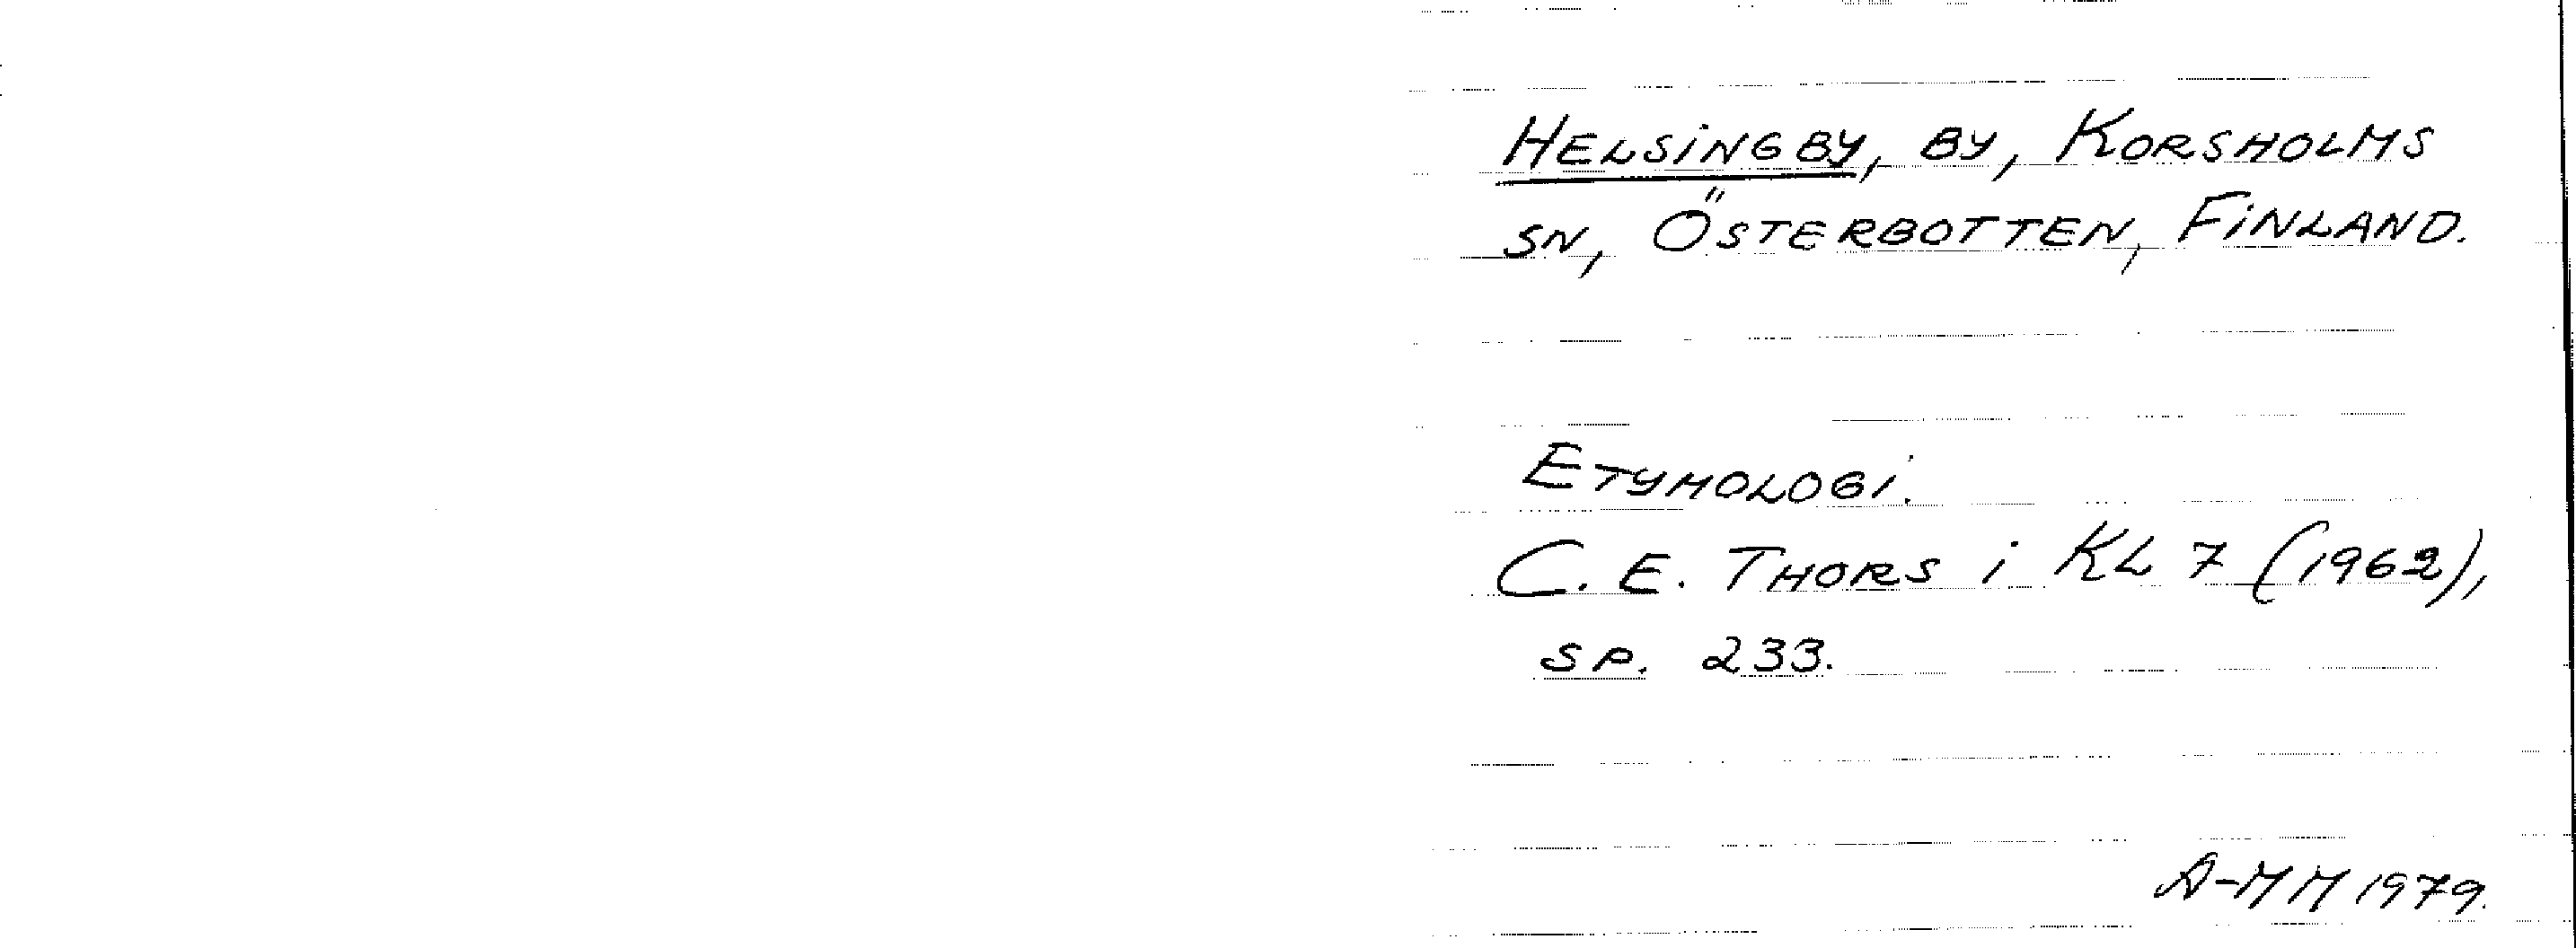 HELSINGBY, BY, KORSHOLMS
SN, ÖSTERBOTTEN, FINLAND.
ETYMOLOGI.
C. E. THORS i KL 7 (1962),
SP. 233.
A-MM 1979.